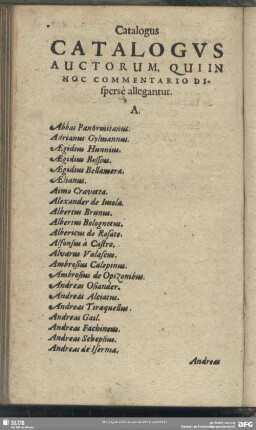 Catalogus
CATALOGVS
AUCTORUM, QUI IN
HOC COMMENTARIO DI-
spersè allegantur.
A.
Abbas Panormitanus.
Adrianus Gylmannus.
Ægidius Hunnius.
Ægidius Bossius.
Ægidius Bellamera.
Ælianus.
Aimo Cravetta.
Alexander de Imola.
Albertus Brunus.
Albertus Bolognetus.
Albericus de Rosate.
Alfonsus à Castro.
Alvarus Valascus.
Ambrosius Calepinus.
Ambrosius de Opizonibus.
Andreas Osiander.
Andreas Alciatus.
Andreas Tiraquellus.
Andreas Gail.
Andreas Fachineus.
Andreas Schepsius.
Andreas de Isernia.
Andreas
SLUB
DFG